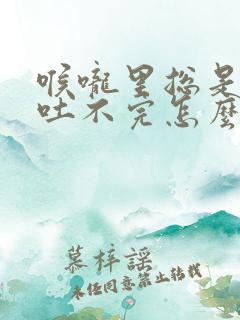 喉嚨里总是
吐不完怎麼
慕梓謡
未任同意禁止转载